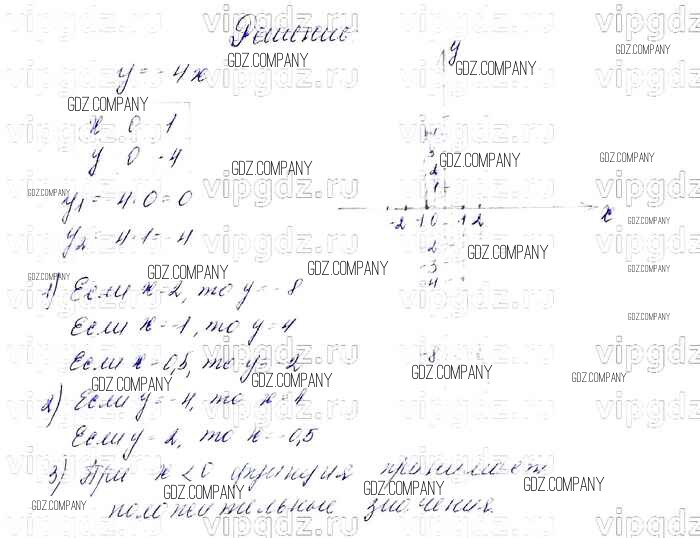 Решение
y = -4x
x 0 1
y 0 -4
y₁ = -4·0 = 0
y₂ = -4·1 = -4
1) Если x=2, то y=-8
Если x=-1, то y=4
Если x=0,5, то y=-2
2) Если y=-4, то x=1
Если y=2, то x=-0,5
3) При x<0 функция принимает
положительные значения.
y
3
2
1
-2 -1 0 1 2 x
-2
-3
-4
-8
vipgdz.ru
GDZ.COMPANY